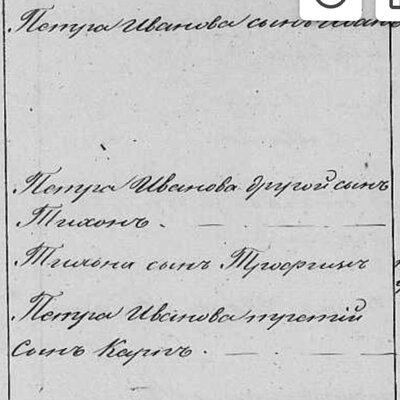 Петра Иванова сынъ Иванъ
Петра Иванова другой сынъ
Тихонъ. — — —
Тихона сынъ Трофимъ
Петра Иванова третій
сынъ Карпъ. — — —